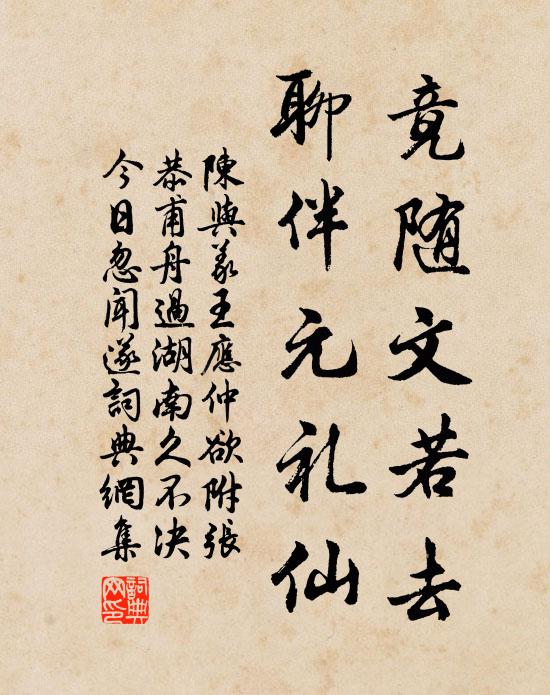 竟随文若去
聊伴元礼仙
陳與義王應仲欲附張
恭甫舟過湖南久不决
今日忽闻遂詞典網集
詞典网印